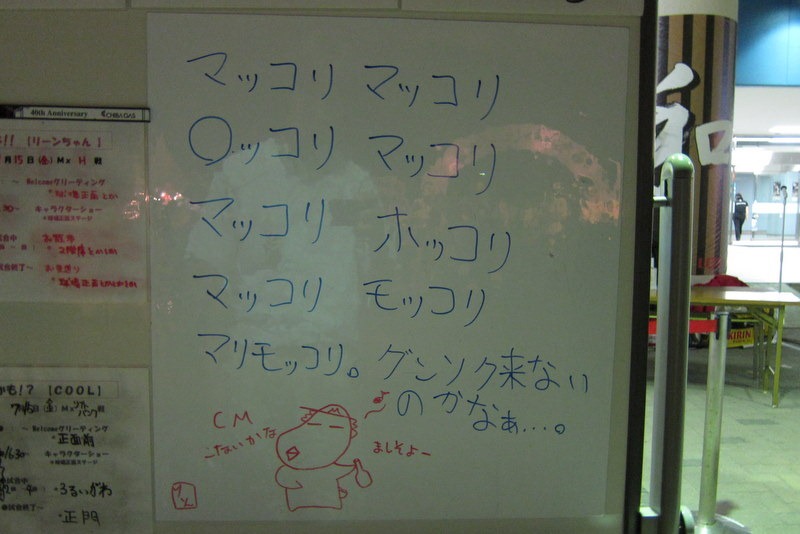 マッコリ マッコリ
〇ッコリ マッコリ
マッコリ ホッコリ
マッコリ モッコリ
マリモッコリ。 ゲンソク来ない
のかなぁ…。
CM
ーないかな
ましそよー
40th Anniversary CHIBAGAS
!! [リーンちゃん]
月15日(金) M× H 戦
～ Welcomeグリーティング
キャラクターショー
お散歩
お見送り
も!? [COOL]
～ Welcomeグリーティング
正面前
キャラクターショー
・ふるいがわ
・正門
和
KIRIN